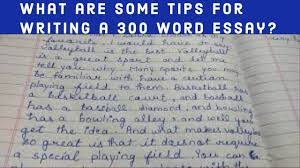 WHAT ARE SOME TIPS FOR
WRITING A 300 WORD ESSAY?
I would have to say
volleyball is the best. Volleyball
is a great sport and let me
tell you why. Many sports you may
be familiar with have a certian
playing field to them. Basketball has
a basketball court, and baseball
has a baseball diamond, and bowling
has a bowling alley and well you
get the idea. And what makes volleyball
so great is that it doesnot require
a special playing field. You can